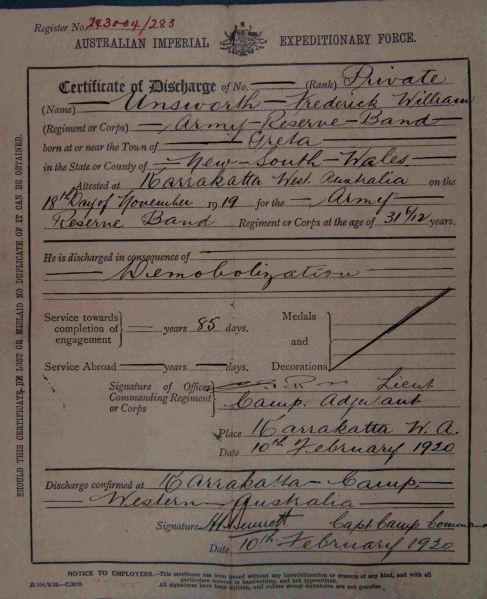 Register No. 243004/283
AUSTRALIAN IMPERIAL EXPEDITIONARY FORCE.
Certificate of Discharge of No. (Rank) Private
(Name) Unsworth - Frederick William
(Regiment or Corps) Army - Reserve - Band
born at or near the Town of Greta
in the State or County of New - South - Wales
Attested at Karrakatta West. Australia on the
18th Day of November 1919 for the Army
Reserve Band Regiment or Corps at the age of 31 years.
He is discharged in consequence of
Demobolization
Service towards completion of engagement years 85 days.
Medals and Decorations
Service Abroad years days.
Signature of Officer Commanding Regiment or Corps Lieut
Camp. Adjutant
Place Karrakatta W. A.
Date 10th February 1920
Discharge confirmed at Karrakatta - Camp.
Western - Australia
Signature Capt Camp
Date 10th February 1920
NOTICE TO EMPLOYERS.—This certificate has been issued without any interlineation or erasure of any kind, and with all
particulars entered in handwriting, and not typewritten.
All signatures have been written, and rubber stamp signatures are not genuine.
SHOULD THIS CERTIFICATE BE LOST OR MISLAID NO DUPLICATE OF IT CAN BE OBTAINED.